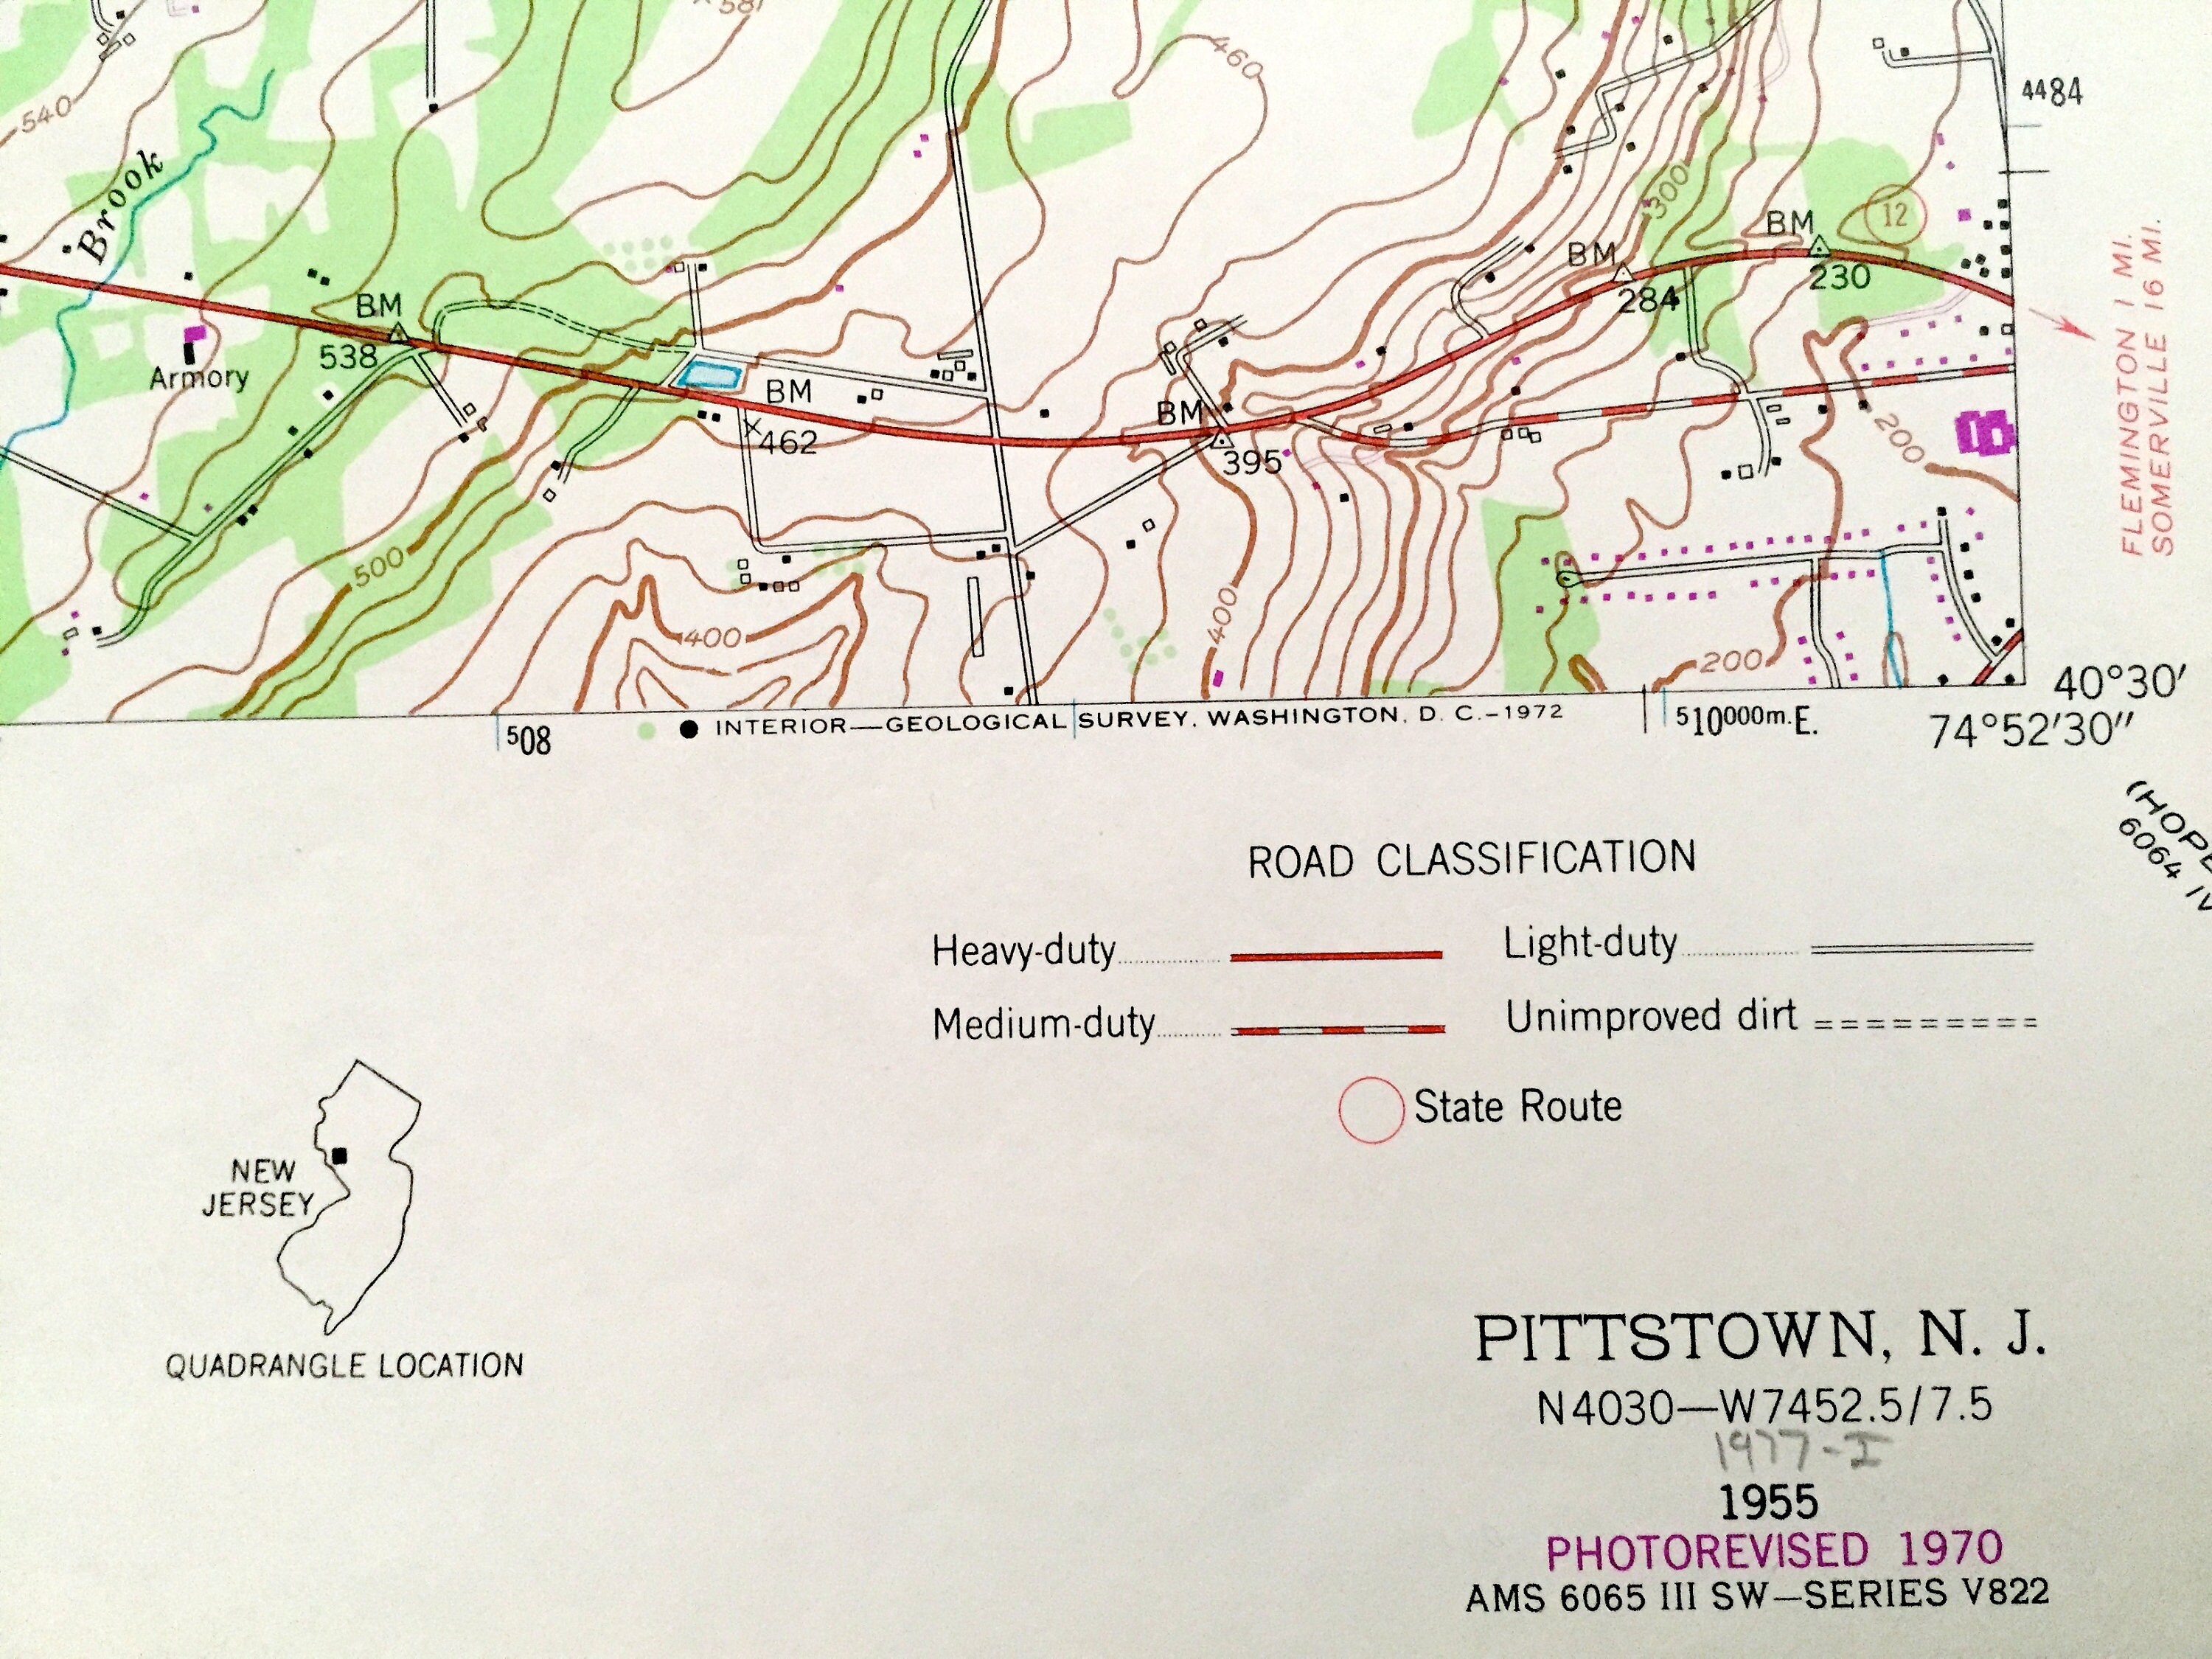 581
460
540
4484
Brook
300
12
BM
BM
230
284
BM
538
Armory
BM
462
BM
395
200
FLEMINGTON 1 MI.
SOMERVILLE 16 MI.
500
400
400
200
40°30′
74°52′30″
508
INTERIOR—GEOLOGICAL SURVEY, WASHINGTON, D. C.–1972
510000m.E.
(HOPE
6064 IV
ROAD CLASSIFICATION
Heavy-duty
Light-duty
Medium-duty
Unimproved dirt
State Route
NEW
JERSEY
QUADRANGLE LOCATION
PITTSTOWN, N. J.
N4030—W7452.5/7.5
1977-I
1955
PHOTOREVISED 1970
AMS 6065 III SW—SERIES V822